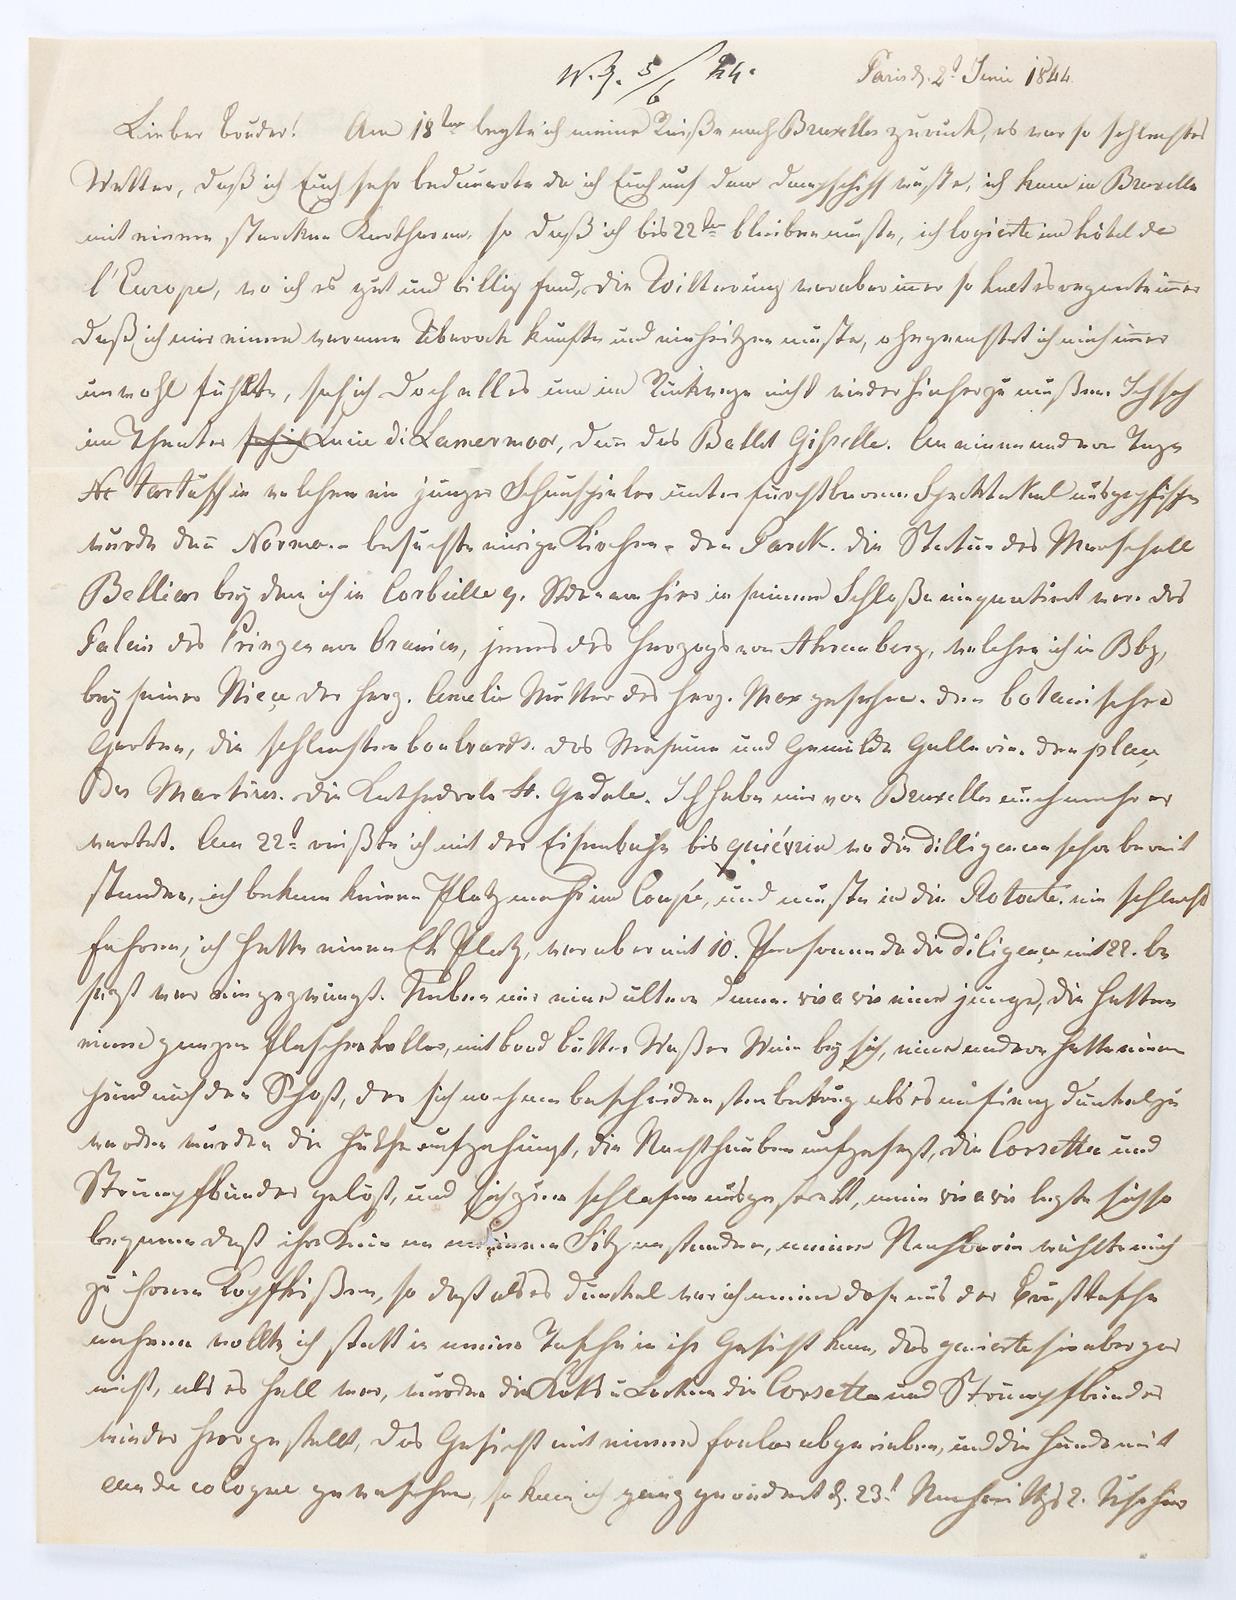 W. Z. 5/6 44.
Paris d. 2t Juni 1844.
Lieber Bruder! Am 18ten legte ich meine Reiße nach Bruxelles zurück, es war so schlechtes
Wetter, daß ich Euch sehr bedauerte da ich Euch auf dem Dampfschiff wußte, ich kam in Bruxelles
mit einem starcken Kartharr, so daß ich bis 22ten bleiben mußte, ich logierte im hôtel de
l'Europe, wo ich es gut und billig fand, die Witterung war aber immer so kalt es regnete immer
daß ich mir einen warmen Überrock kaufte und einheitzen mußte, ohngeachtet ich mich immer
unwohl fühlte, sah ich doch alles um im Rückwege nicht wieder hieher zu müßen. Ich sah
im Theater Lucie di Lamermoor, dann das Ballet Gisselle. An einem andern Tage
Tartuff in welchem ein junger Schauspieler unter furchtbarem Specktakel ausgepfiffen
wurde dann Norma. - besuchte einige Kirchen - den Parck. die Statue des Marschall
Belliar bey dem ich in Corbeille hier in seinem Schloße einquartirt war. das
Palais des Prinzen von Oranien, jenes des Herzogs von Ahremberg, welchen ich in Bbg,
bey seiner Nieçe der Herz. Amelie Mutter des Herz. Max gesehen. den botanischen
Garten, die schlechten boulvards. das Museum und Gemälde Gallerie. den plaçe
des Martires. die Kathedrale St. Gudule. Ich habe mir von Bruxelles auch mehr er
wartet. Am 22t reißte ich mit der Eisenbahn bis quiévrin wo die dilligencen schon bereit
standen, ich bekam keinen Platz mehr im Coupé, und mußte in die Rotonte. ein schlecht
fahren, ich hatte einen Eck Platz, war aber mit 10. Personen da die diligençe mit 22. be
setzt war eingezwengt. Neben mir eine ältere Dame. vis a vis eine junge, die hatten
einen ganzen flaschenkeller, mit brod butter Waßer Wein bey sich, eine andere hatte einen
Hund auf dem Schoß, der sich noch am bescheidensten betrug als es anfieng dunkel zu
werden wurden die Hüthe aufgehengt, die Nachthauben aufgesetzt, die Corsetten und
Strumpfbänder gelößt, und sich zum schlafen ausgestreckt, mein vis a vis legte sich so
bequem daß ihre Knie an meinem Sitz anstanden, meine Nachbarin wählte mich
zu ihrem Kopfkißen, so daß als es dunckel war ich meine dose aus der Brusttasche
nehmen wollte, ich statt in meine Tasche in ihr Gesicht kam, das genierte sie aber gar
nicht, als es hell war, wurden die Locken die Corsetten und Strumpfbänder
wieder hergestellt, das Gesicht mit einem foular abgerieben, und die Hände mit
eau de cologne gewaschen, so kam ich ganz gerädert d. 23t Nachmittags 2. Uhr hier